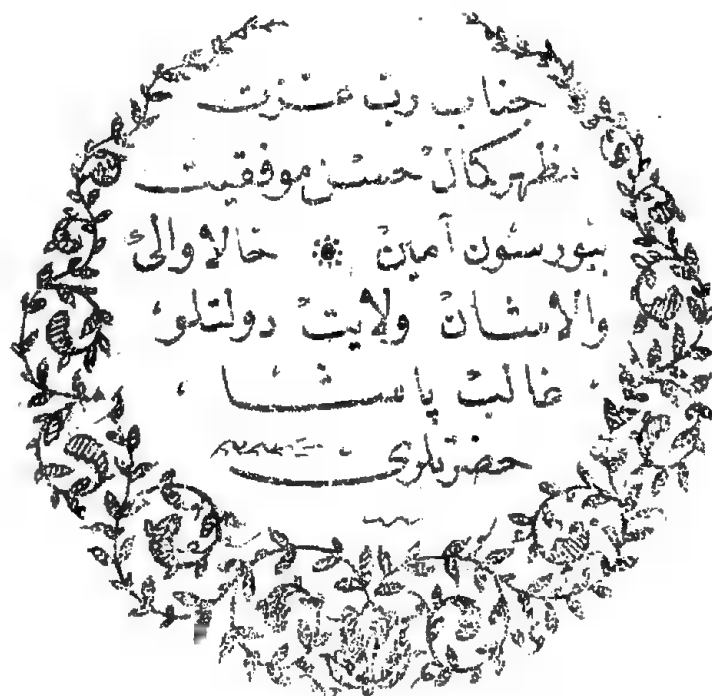 جناب رب عزت
مظهر كمال حسن موفقيت
بيورسون آمين * حالا والئ
والاشان ولايت دولتلو
غالب پاشا
حضرتلرى